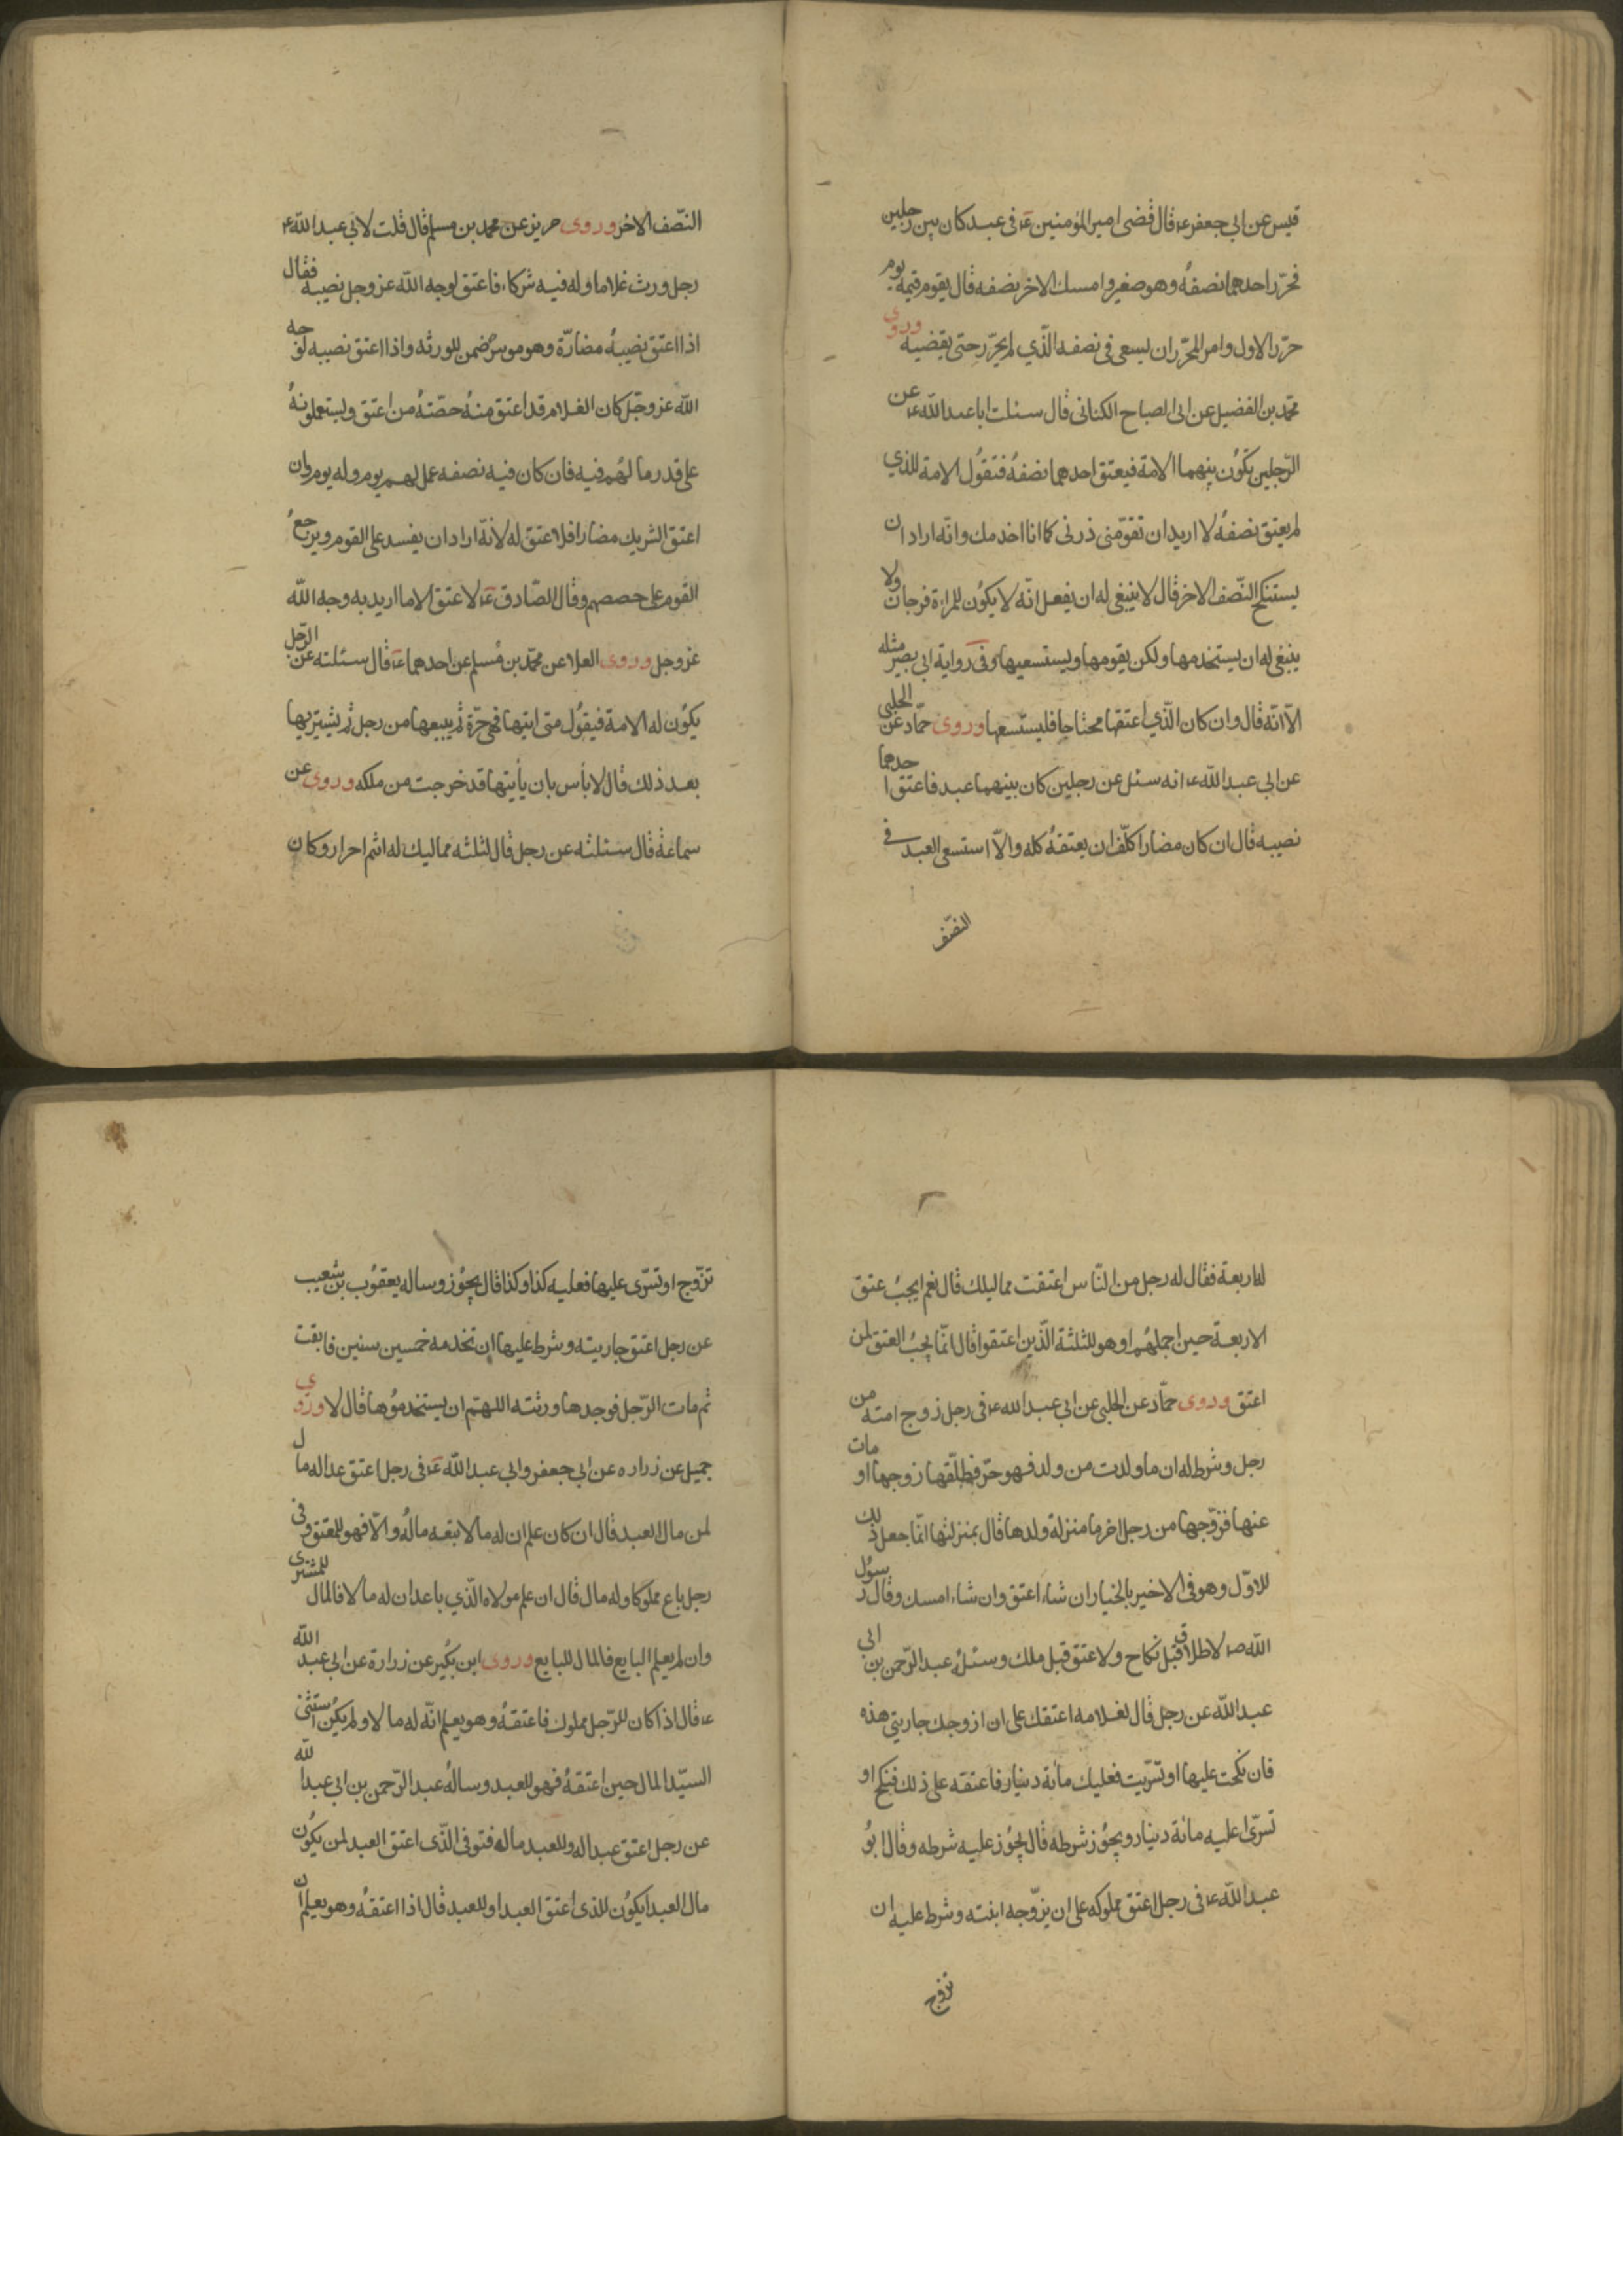 قيس عن ابي جعفر ع قال قضى امير المؤمنين ع في عبد كان بين رجلين
فحرّر احدهما نصفهُ وهو صغير وامسك الاخر نصفه قال يقوم قيمة يوم
حرّر الاول وامر المحرّر ان يسعى في نصفه الّذي لم يحرّر حتى يقضيه وروى
محمّد بن الفضيل عن ابي الصباح الكناني قال سئلت ابا عبد الله ع عن
الرّجلين يكوُن بينهما الامة فيعتق احدهما نصفهُ فتقوُل الامة للذي
لم يعتق نصفهُ لا اريد ان تقوّمني ذرني كما انا اخدمك وانّه اراد ان
يستنكح النّصف الاخر قال لا ينبغي له ان يفعل انّه لا يكوُن للمراة فرجان ولا
ينبغي له ان يستخدمها ولكن يقومها ويستسعيها وفي رواية ابي بصير مثله
الّا انّه قال وان كان الّذي اعتقها محتاجا فليستسعها وروى حمّاد عن الحلبى
عن ابي عبد الله ع انه سئل عن رجلين كان بينهما عبد فاعتق احدهما
نصيبه قال ان كان مضارا كلّف ان يعتقهُ كله والّا استسعى العبد في
النصّف
النّصف الاخر وروى حريز عن محمد بن مسلم قال قلت لابي عبد الله ع
رجل ورث غلاما وله فيه شركاء فاعتق لوجه الله عز وجل نصيبه فقال
اذا اعتق نصيبهُ مضارّة وهو موسر ضمن للورثه واذا اعتق نصيبه لوجه
الله عز وجّل كان الغلام قد اعتق منهُ حصّتهُ من اعتق ويستعملونهُ
على قدر ما لهُم فيه فان كان فيه نصفه عمل لهم يوم وله يوم وان
اعتق الشريك مضارا فلا عتق له لانّه اراد ان يفسد على القوم ويرجعُ
القوم على حصصهم وقال الصّادق ع لا عتق الا ما اريد به وجه الله
عز وجل وروى العلا عن محمّد بن مُسلم عن احدهما ع قال سئلته عن الرّجل
يكوُن له الامة فيقوُل متى اتيتها فهي حرّة ثم يبيعها من رجل ثم يشتريها
بعد ذلك قال لا بأس بان يأتيها قد خرجت من ملكه وروى عن
سماعة قال سئلته عن رجل قال لثلثه مماليك له انتم احرار وكان
له اربعة فقال له رجل من النّاس اعتقت مماليك قال نعم ايجبُ عتق
الاربعة حين اجملهُم او هو للثلثة الّذين اعتقوا قال انّما يجبُ العتق لمن
اعتق وروى حمّاد عن الحلبى عن ابي عبد الله ع في رجل زوج امته من
رجل وشرط له ان ما ولدت من ولد فهو حرّ فطلّقها زوجها او مات
عنها فزوّجها من رجل اخر ما منزلة ولدها قال بمنزلتها انّما جعل ذلك
للاوّل وهو في الاخير بالخيار ان شاء اعتق وان شاء امسك وقال رسوُل
الله ص لا طلاق قبل نكاح ولا عتق قبل ملك وسئلهُ عبد الرّحمن بن ابي
عبد الله عن رجل قال لغلامه اعتقك على ان ازوجك جاريتي هذه
فان نكحت عليها او تسرّيت فعليك مائة دينار فاعتقه على ذلك فنكح او
تسرّى عليه مائة دينار ويجوُز شرطه قال يجوُز عليه شرطه وقال ابوُ
عبد الله ع في رجل اعتق مملوكه على ان يزّوجه ابنته وشرط عليه ان
تزوج
تزّوج او تسّرى عليها فعليه كذا وكذا قال يجوُز وساله يعقوُب بن شعيب
عن رجل اعتق جاريته وشرط عليها ان تخدمه خمسين سنين فابقت
ثم مات الرّجل فوجدها ورثته اللهتم ان يستخدموُها قال لا وروى
جميل عن زراره عن ابي جعفر وابي عبد الله ع في رجل اعتق عبدا له مال
لمن مال العبد قال ان كان علم ان له مالا تبعه مالُه والّا فهو للمعتق وفى
رجل باع مملوكا وله مال قال ان علم مولاه الّذي باعه ان له مالا فالمال للمشترى
وان لم يعلم البايع فالمال للبايع وروى ابن بُكير عن زرارة عن ابي عبد الله
ع قال اذا كان للرّجل مملوك فاعتقهُ وهو يعلم انّه له مالا ولم يكُن استثنى
السيّد المال حين اعتقهُ فهو للعبد وسالهُ عبد الرّحمن بن ابي عبد الله
عن رجل اعتق عبدا له وللعبد ماله فتوفى الّذى اعتق العبد لمن يكوُن
مال العبد ايكوُن للذى اعتق العبد او للعبد قال اذا اعتقهُ وهو يعلم ان